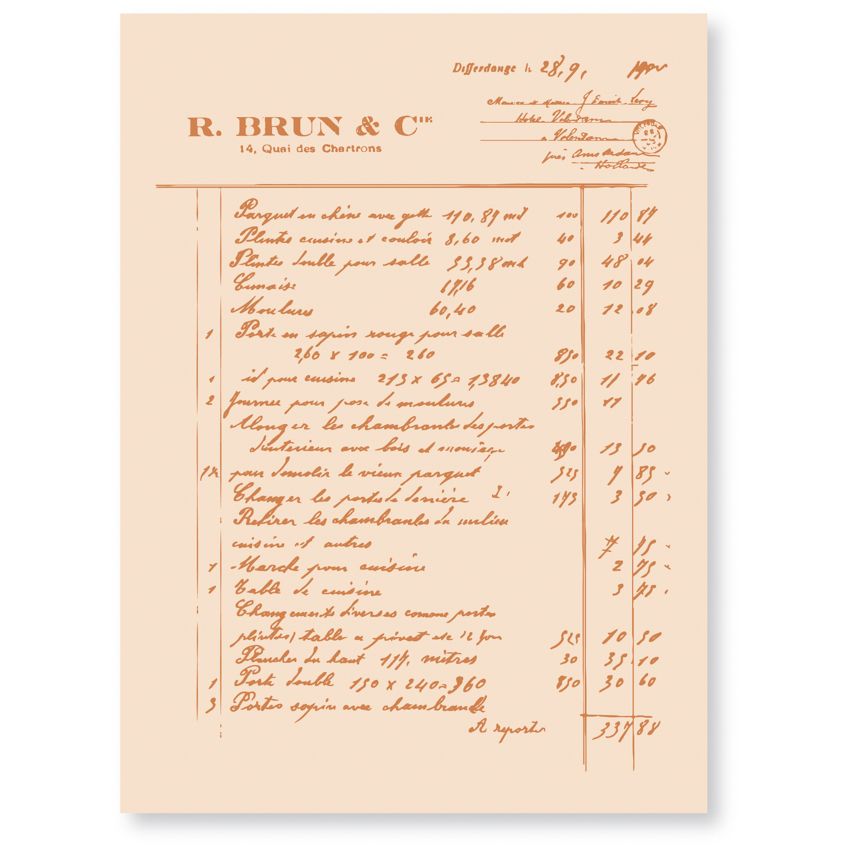 Differdange le 28, 9,
R. BRUN & Cie
14, Quai des Chartrons
Hotel Volendam
a Volendam
près Amsterdam
Hollande
Parquet en chêne avec 110,89 mt 100 110 89
Plintes cuisine et couloir 8,60 met 40 3 44
Plintes double pour salle 53,38 mt 90 48 04
Cimaise 17,16 60 10 29
Moulures 60,40 20 12 08
1 Porte en sapin rouge pour salle
2,60 x 100 = 260 850 22 10
1 id pour cuisine 213 x 65 = 1,3840 8,50 11 76
2 Journée pour pose de moulures 550 11
Alonger les chambrantes des portes
d'interieur avec bois et 13 50
pour demolir le vieux parquet 525 7 85
Changer les portes de derrière 175 3 50
Retirer les chambrantes du milieu
cuisine et autres 7 75
1 Marche pour cuisine 2 75
1 Table de cuisine 3 75
Changements diverses comme portes
plintes, table 525 10 50
Plancher du haut 117, mètres 30 35 10
1 Porte double 150 x 240 = 360 850 30 60
3 Portes sapin avec chambrante
A reporter 337 88